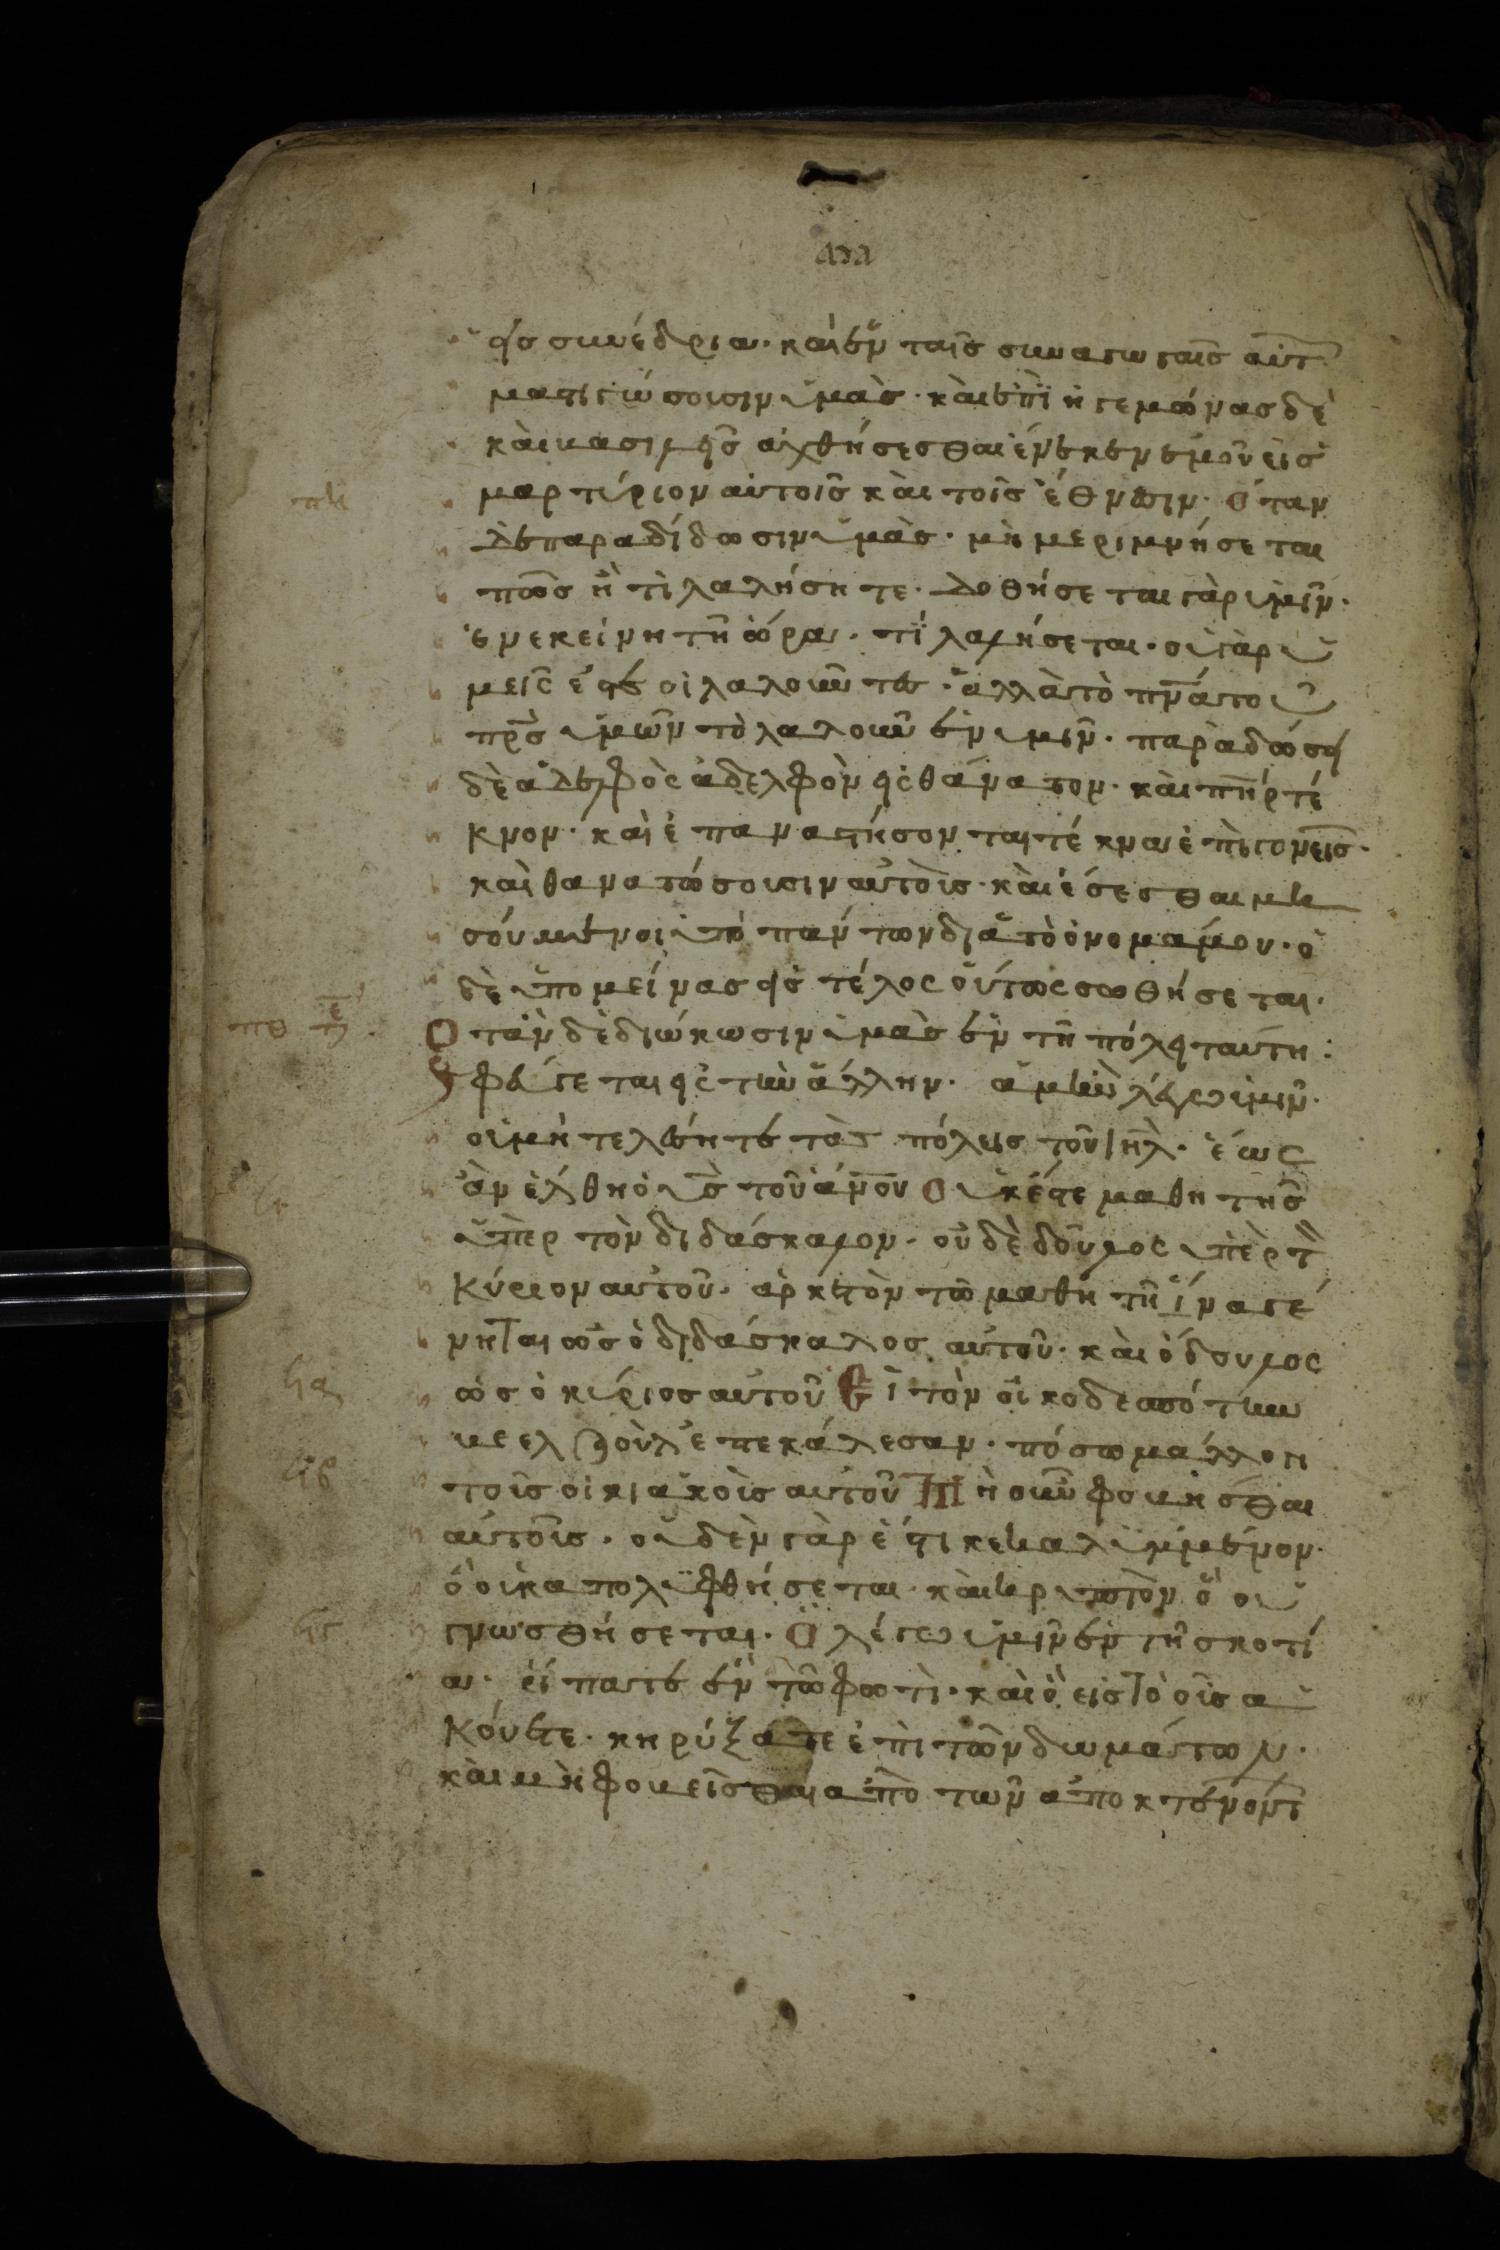 εἰς συνέδρια· καὶ ἐν ταῖς συναγωγαῖς αὐτ
μαστιγώσουσιν ὑμὰς· καὶ ἐπὶ ἡγεμώνας δὲ
καὶ βασιλεῖς ἀχθήσεσθαι ἕνεκεν ἐμοῦ εἰσ
μαρτύριον αὐτοῖς καὶ τοῖς ἔθνεσιν· Ὅταν
δὲ παραδίδωσιν ὑμὰς· μὴ μεριμνήσεται
πῶς ἢ τὶ λαλήσητε· δοθήσεται γὰρ ὑμῖν·
ἐν ἐκείνη τῆ ὥρα· τί λαλήσεται· οὐ γὰρ ὑ
μεῖς ἐστὲ οἱ λαλοῦντες· ἀλλὰ τὸ πνᾶ το
πρς ὑμῶν τὸ λαλοῦν ἐν ὑμῖν· παραδώσει
δὲ ἀδελφὸς ἀδελφὸν εἰς θάνατον· καὶ πηρ τέ
κνον· καὶ ἐπαναστήσονται τέκνα ἐπὶ γονεῖς·
καὶ θανατώσουσιν αὐτοὶς· καὶ ἔσεσθαι μι
σούμενοι ὑπὸ πάντων διὰ τὸ ὄνομά μου· ὁ
δὲ ὑπομείνας εἰς τέλος οὕτως σωθήσεται·
Ὅταν δὲ διώκωσιν ὑμὰς ἐν τῆ πόλει ταύτη:
φεύγεται εἰς τὴν ἄλλην· ἀμὴν λέγω ὑμῖν·
οὐ μὴ τελέσητε τὰς πόλεις τοῦ ιηλ· ἕως
ἂν ἔλθη ὁ υς τοῦ ανου Οὐκ ἔστι μαθητὴς
ὑπὲρ τὸν διδάσκαλον· οὐδὲ δοῦλος ὑπὲρ τὸ
κύριον αὐτοῦ· ἀρκετὸν τῶ μαθητῆ ἵνα γέ
νηται ὡς ὁ διδάσκαλος αὐτοῦ· καὶ ὁ δοῦλος
ὡς ὁ κύριος αὐτοῦ Εἰ τὸν οἰκοδεσπότην
βεελζουλ ἐπεκάλεσαν· πόσω μάλλον
τοῖς οἰκιακοὶς αὐτοῦ Μὴ οὖν φοβῆσθαι
αὐτοῖς· οὐδὲν γὰρ ἐστι κεκαλυμμένον·
ὃ οὐκ ἀπολυφθήσεται· καὶ κρυπτὸν ὃ οὐ
γνωσθήσεται· Ὃ λέγω ὑμῖν ἐν τῆ σκοτί
α· εἴπατε ἐν τῶ φωτὶ· καὶ ὃ εἰς τὸ οἶς α
κούετε· κηρύξατε ἐπὶ τῶν δωμάτων·
καὶ μὴ φοβεῖσθαι ἀπὸ τῶν ἀποκτενοντ